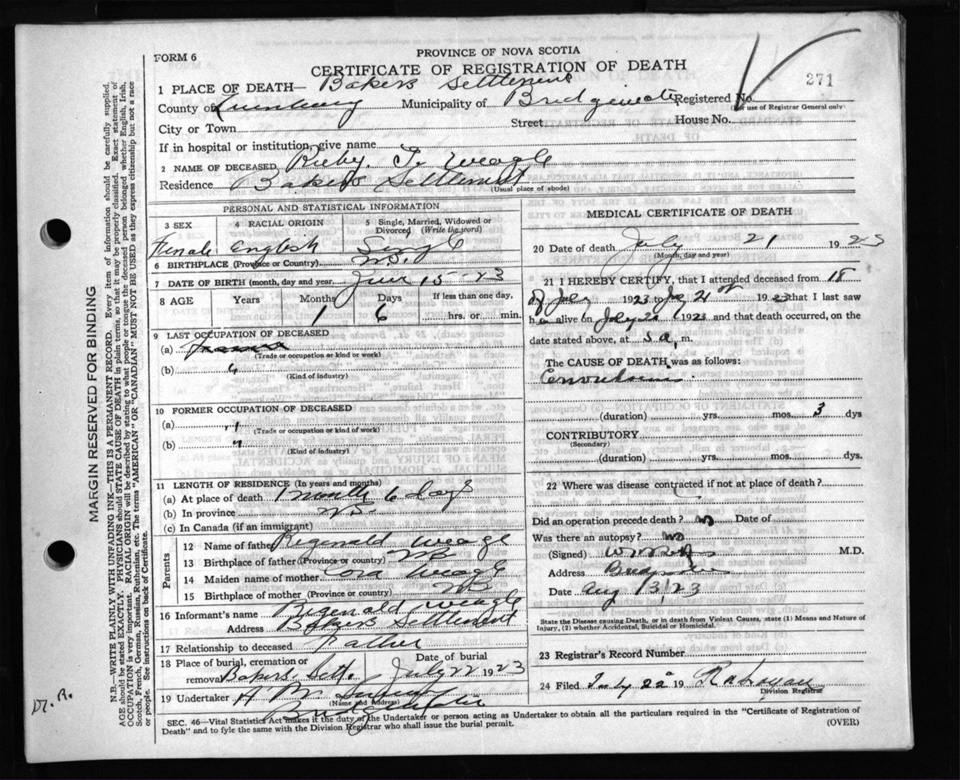 FORM 6
PROVINCE OF NOVA SCOTIA
CERTIFICATE OF REGISTRATION OF DEATH
271
1 PLACE OF DEATH— Bakers Settlement
County of Lunenburg Municipality of Bridgewater Registered No.
(For use of Registrar General only)
City or Town Street: House No.
If in hospital or institution, give name
2 NAME OF DECEASED Weagle
Residence Bakers Settlement
(Usual place of abode)
PERSONAL AND STATISTICAL INFORMATION
3 SEX 4 RACIAL ORIGIN 5 Single, Married, Widowed or Divorced (Write the word)
Female English Single
6 BIRTHPLACE (Province or Country) N.S.
7 DATE OF BIRTH (month, day and year) June 15-23
8 AGE Years Months Days If less than one day.
1 6 hrs. or min.
9 LAST OCCUPATION OF DECEASED
(a)
(Trade or occupation or kind of work)
(b)
(Kind of industry)
10 FORMER OCCUPATION OF DECEASED
(a)
(Trade or occupation or kind of work)
(b)
(Kind of industry)
11 LENGTH OF RESIDENCE (In years and months)
(a) At place of death 1 month 6 days
(b) In province N.S.
(c) In Canada (if an immigrant)
Parents
12 Name of father Reginald Weagle
13 Birthplace of father (Province or country) N.S.
14 Maiden name of mother Cora Weagle
15 Birthplace of mother (Province or country) N.S.
16 Informant's name Riginald Weagle
Address Bakers Settlement
17 Relationship to deceased Father
18 Place of burial, cremation or removal Bakers Sett. Date of burial July 22 1923
19 Undertaker H M
(Name and Address)
Bridgewater
MEDICAL CERTIFICATE OF DEATH
20 Date of death July 21 1923
(Month, day and year)
21 I HEREBY CERTIFY, that I attended deceased from 18
of July 1923 to 21st 1923 that I last saw
h alive on July 20 1923 and that death occurred, on the
date stated above, at 5 a, m.
The CAUSE OF DEATH was as follows:
Convulsions
(duration) yrs. mos. 3 dys
CONTRIBUTORY
(Secondary)
(duration) yrs. mos. dys
22 Where was disease contracted if not at place of death?
Did an operation precede death? no Date of
Was there an autopsy? no
(Signed) M.D.
Address Bridgewater
Date Aug 13/23
State the Disease causing Death, or in death from Violent Causes, state (1) Means and Nature of Injury, (2) whether Accidental, Suicidal or Homicidal.
23 Registrar's Record Number
24 Filed July 22 19
Division Registrar
SEC. 46—Vital Statistics Act makes it the duty of the Undertaker or person acting as Undertaker to obtain all the particulars required in the "Certificate of Registration of
Death" and to fyle the same with the Division Registrar who shall issue the burial permit.
(OVER)
MARGIN RESERVED FOR BINDING
N.B.—WRITE PLAINLY WITH UNFADING INK—THIS IS A PERMANENT RECORD. Every item of information should be carefully supplied.
AGE should be stated EXACTLY. PHYSICIANS should STATE CAUSE OF DEATH in plain terms, so that it may be properly classified. Exact statement of
OCCUPATION is very important. RACIAL ORIGIN will be described by stating to what people or tongue the deceased person belonged whether English, Irish,
Scotch, French, German, Russian, Ruthenian, etc. The terms "AMERICAN" or "CANADIAN" MUST NOT BE USED as they express citizenship but not a race
or people. See instructions on back of Certificate.